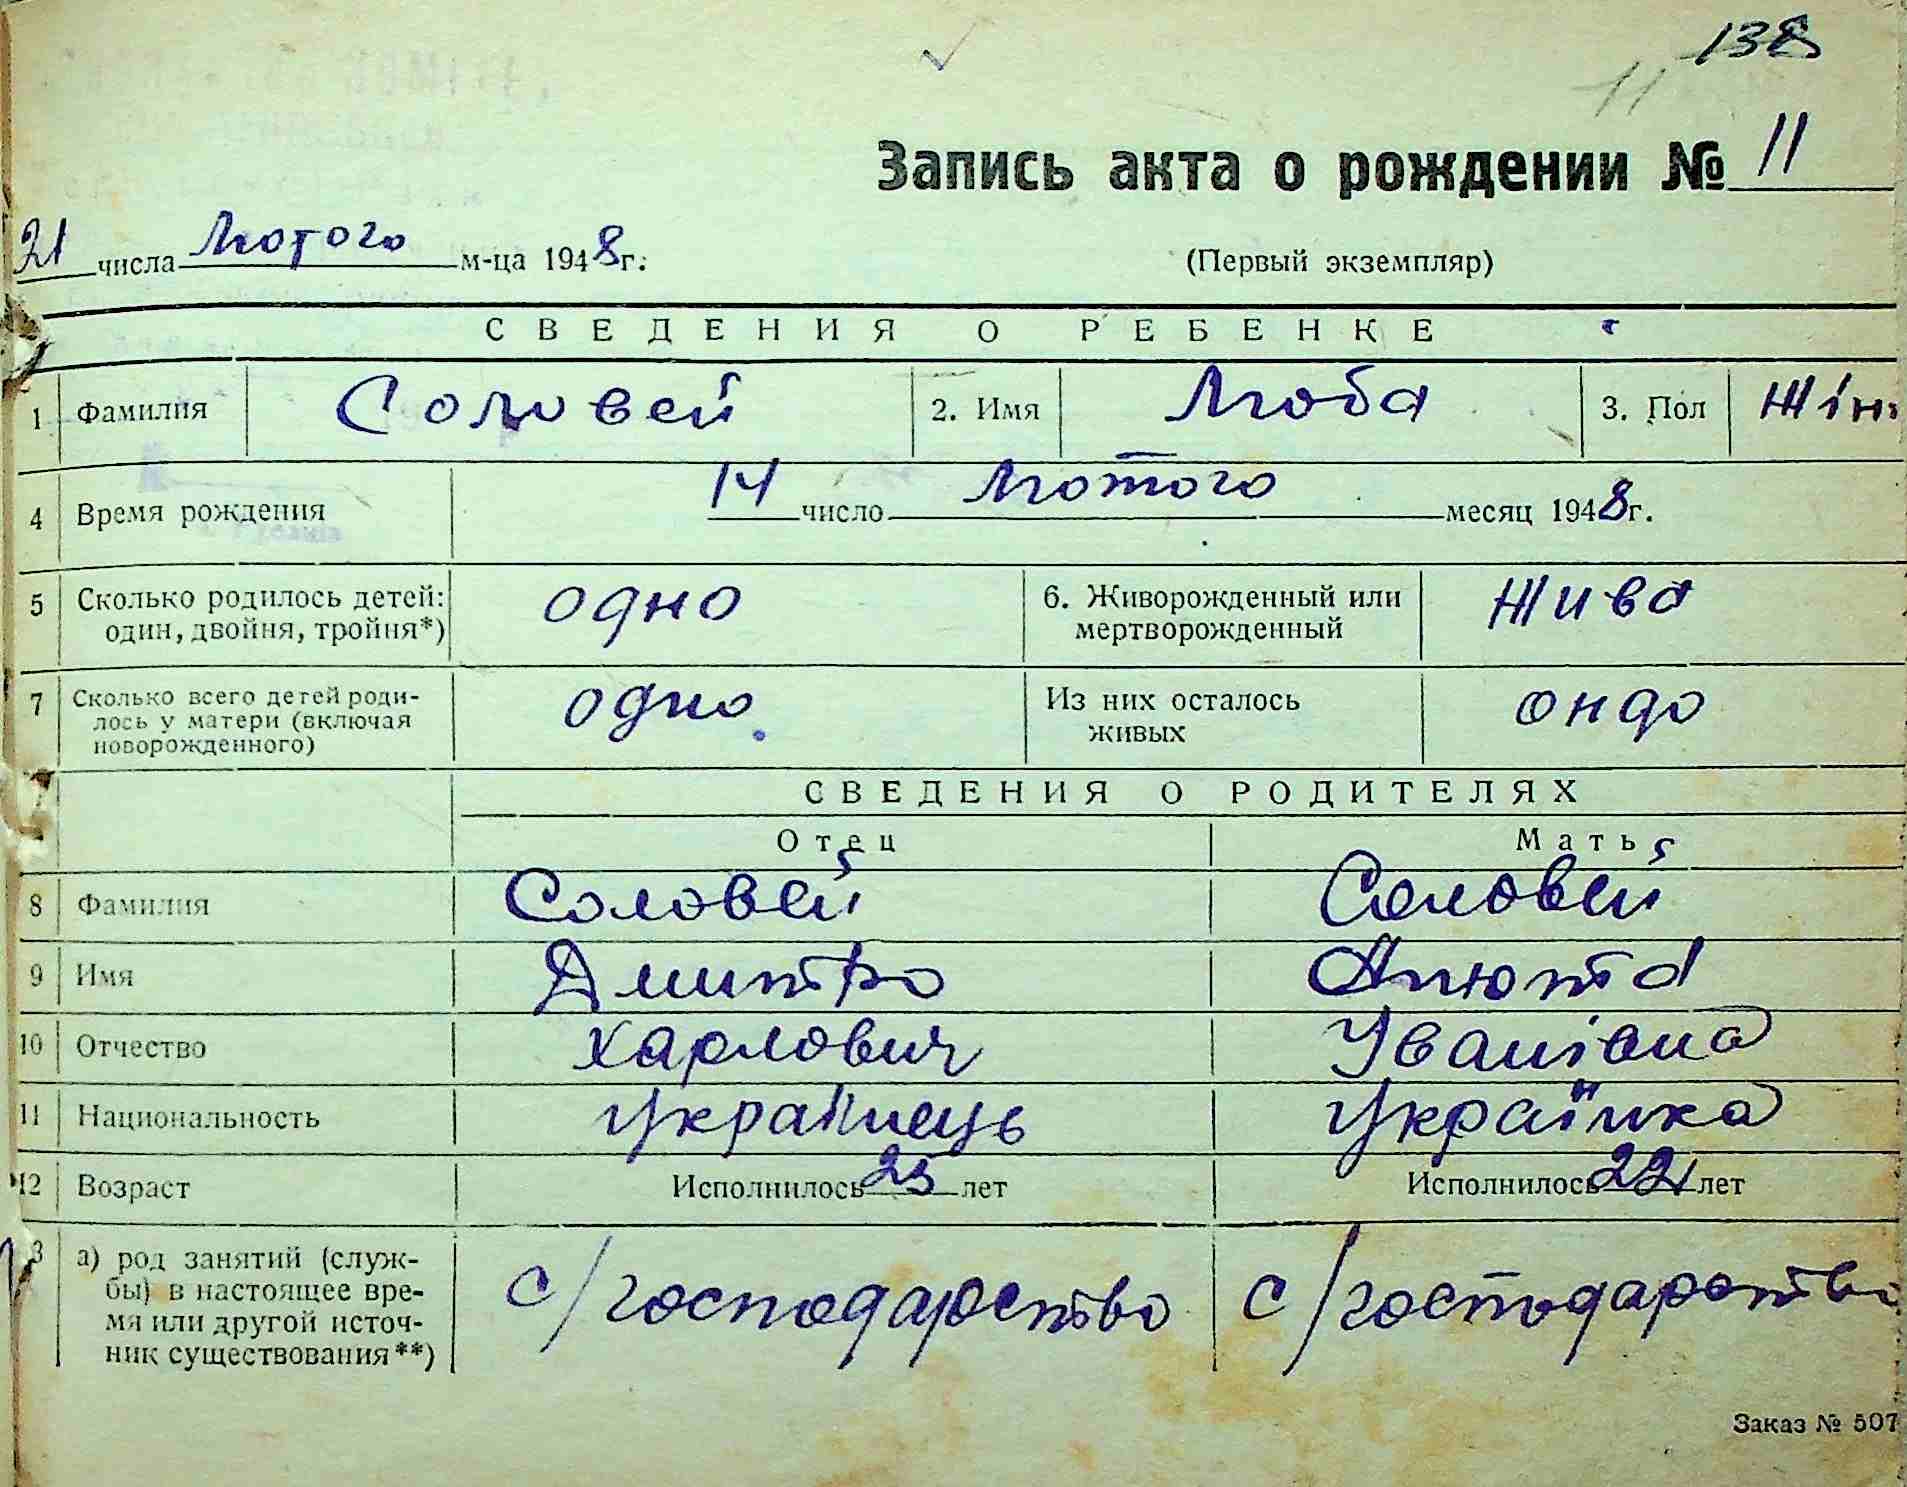 138
11
Запись акта о рождении № 11
21 числа Лютого м-ца 1948г. (Первый экземпляр)
СВЕДЕНИЯ О РЕБЕНКЕ
1 Фамилия Соловей 2. Имя Люба 3. Пол Жін
4 Время рождения 14 число Лютого месяц 1948г.
5 Сколько родилось детей: один, двойня, тройня*) одно 6. Живорожденный или мертворожденный Жива
7 Сколько всего детей роди-
лось у матери (включая
новорожденного) одно Из них осталось живых ондо
СВЕДЕНИЯ О РОДИТЕЛЯХ
Отец Мать
8 Фамилия Соловей Соловей
9 Имя Дмитро Анюта
10 Отчество Харлович Іванівна
11 Национальность Українець Українка
12 Возраст Исполнилось 25 лет Исполнилось 22 лет
13 а) род занятий (служ-
бы) в настоящее вре-
мя или другой источ-
ник существования**) с/господарство с/господарство
Заказ № 507